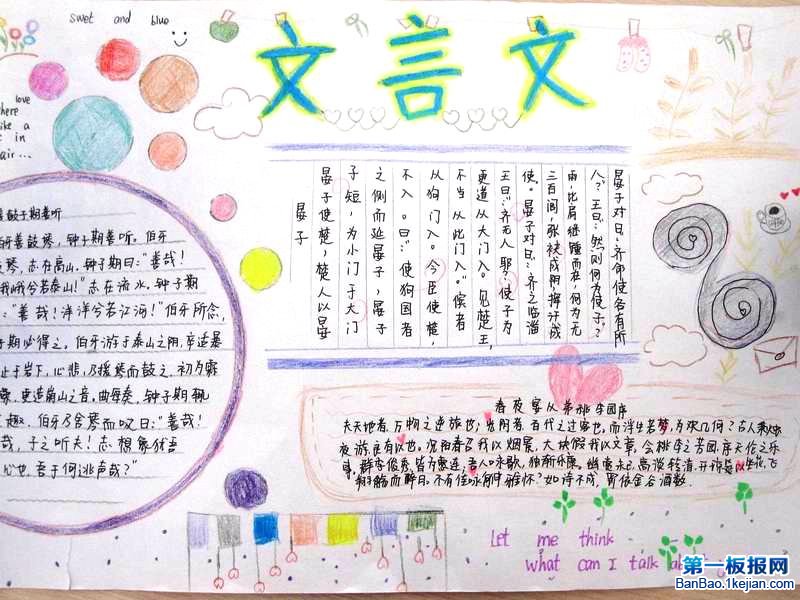 swet and blue
love
here
ike a
in
air...
文言文
鼓子期善听
牙善鼓琴，钟子期善听。伯牙
琴，志在高山，钟子期曰："善哉！
峨兮若泰山！"志在流水，钟子期
："善哉！洋洋兮若江河！"伯牙所念，
子期必得之。伯牙游于泰山之阴，卒逢暴
止于岩下，心悲，乃援琴而鼓之。初为霖
，更造崩山之音。曲每奏，钟子期辄
趣。伯牙乃舍琴而叹曰："善哉！
哉，子之听夫！志想象犹吾
心也。吾于何逃声哉？"
晏子
晏子使楚，楚人以晏
子短，为小门于大门
之侧而延晏子，晏子
不入。曰："使狗国者
从狗门入。今臣使楚，
不当从此门入。"傧者
更道从大门入。见楚王，
王曰："齐无人耶，使子为
使。晏子对曰：齐之临淄
三百闾，张袂成阴，挥汗成
雨，比肩继踵而在，何为无
人？"王曰："然则何为使子？"
晏子对曰：齐命使各有所
春夜宴从弟桃李园序
夫天地者，万物之逆旅也；光阴者，百代之过客也。而浮生若梦，为欢几何？古人秉烛
夜游，良有以也。况阳春召我以烟景，大块假我以文章。会桃李之芳园，序天伦之乐
事。群季俊秀，皆为惠连；吾人咏歌，独惭康乐。幽赏未已，高谈转清。开琼筵以坐花，飞
羽觞而醉月。不有佳咏，何伸雅怀？如诗不成，罚依金谷酒数
Let me think
what can I talk
第一板报网
BanBao.1kejian.com